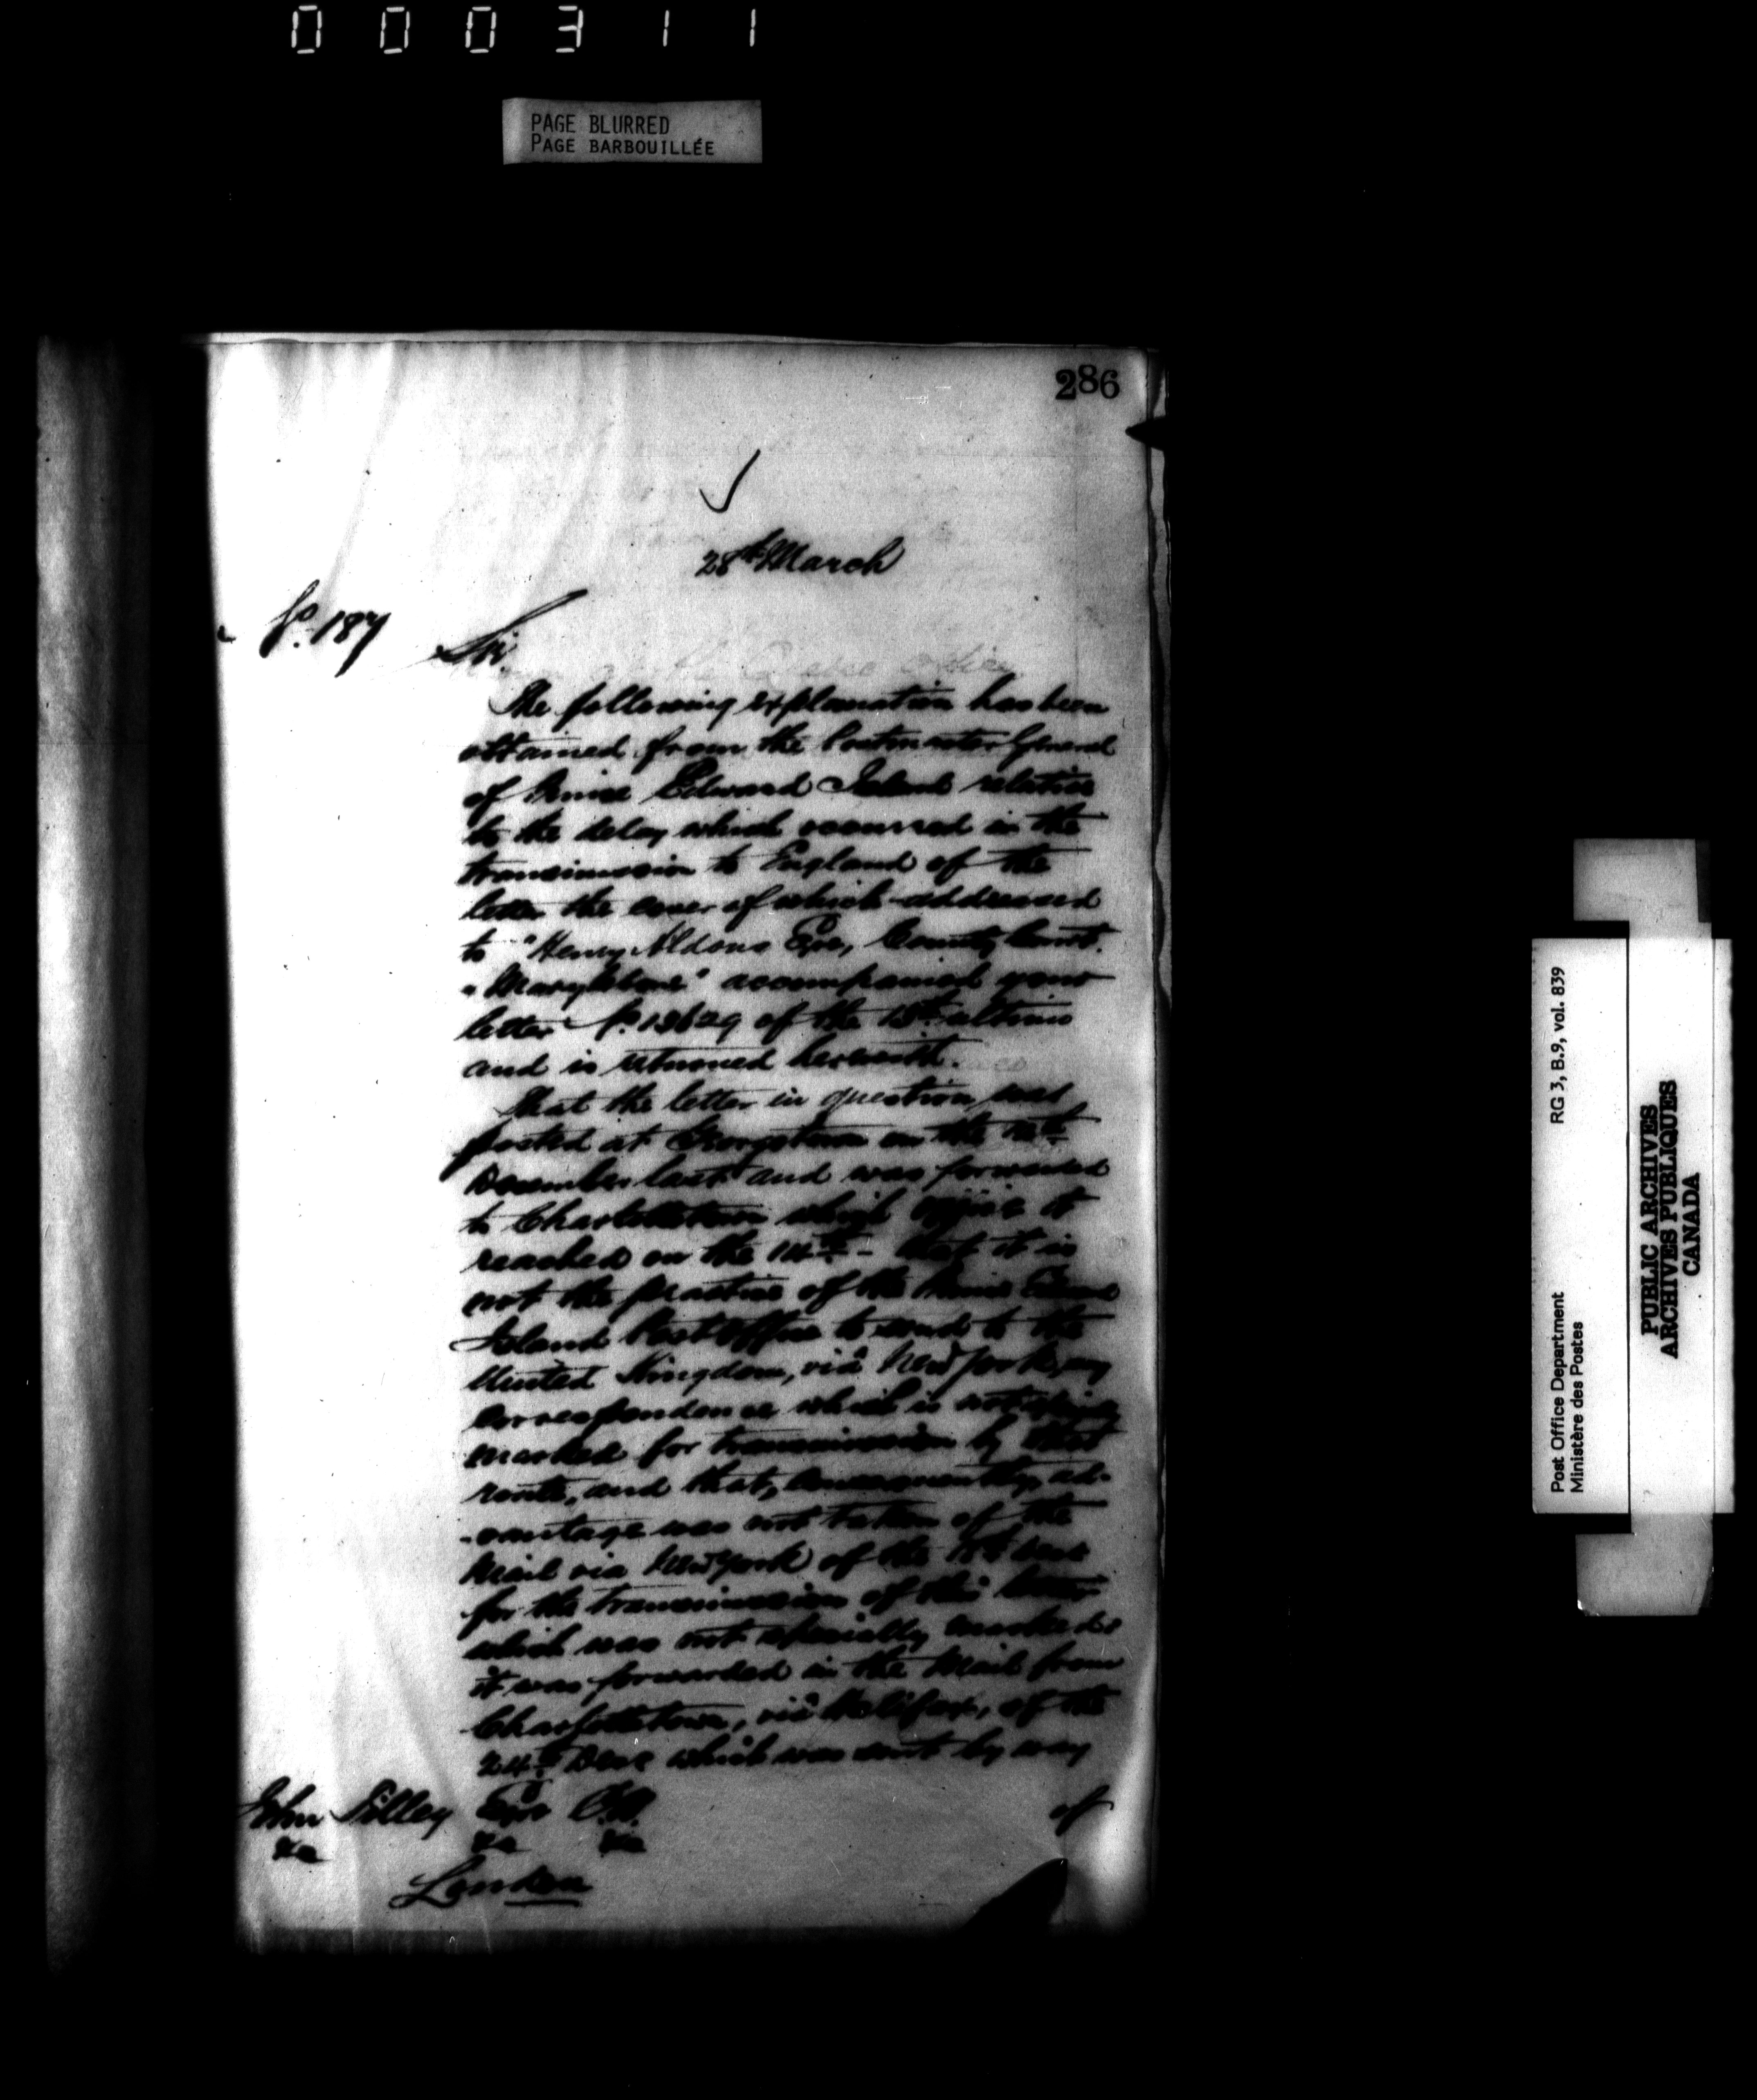 000311
PAGE BLURRED
PAGE BARBOUILLÉE
286
28th March
No. 187
Sir.
The following explanation has been
obtained from the Postmaster General
of Prince Edward Island relative
to the delay which occurred in the
transmission to England of the
letter the cover of which addressed
to "Henry Aldous Eqre, County Court.
"Marylebone" accompanied your
letter No. 13629 of the 15th ultimo
and is returned herewith.
That the letter in question was
posted at Georgetown on the 12th
December last and was forwarded
to Charlottetown which office it
reached on the 14th - that it is
not the practice of the Prince Edward
Island Post Office to send to the
United Kingdom, viâ New York, any
correspondence which is not
marked for transmission by that
route, and that, consequently, ad-
-vantage was not taken of the
Mail via New York of the
for the transmission of this letter
which was not specially marked:
it was forwarded in the Mail from
Charlottetown, viâ Halifax, of the
24th Decr which was sent by way
of
John Tilley Esqre C.B.
&c &c &c
London
Post Office Department RG 3, B.9, vol. 839
Ministère des Postes
PUBLIC ARCHIVES
ARCHIVES PUBLIQUES
CANADA